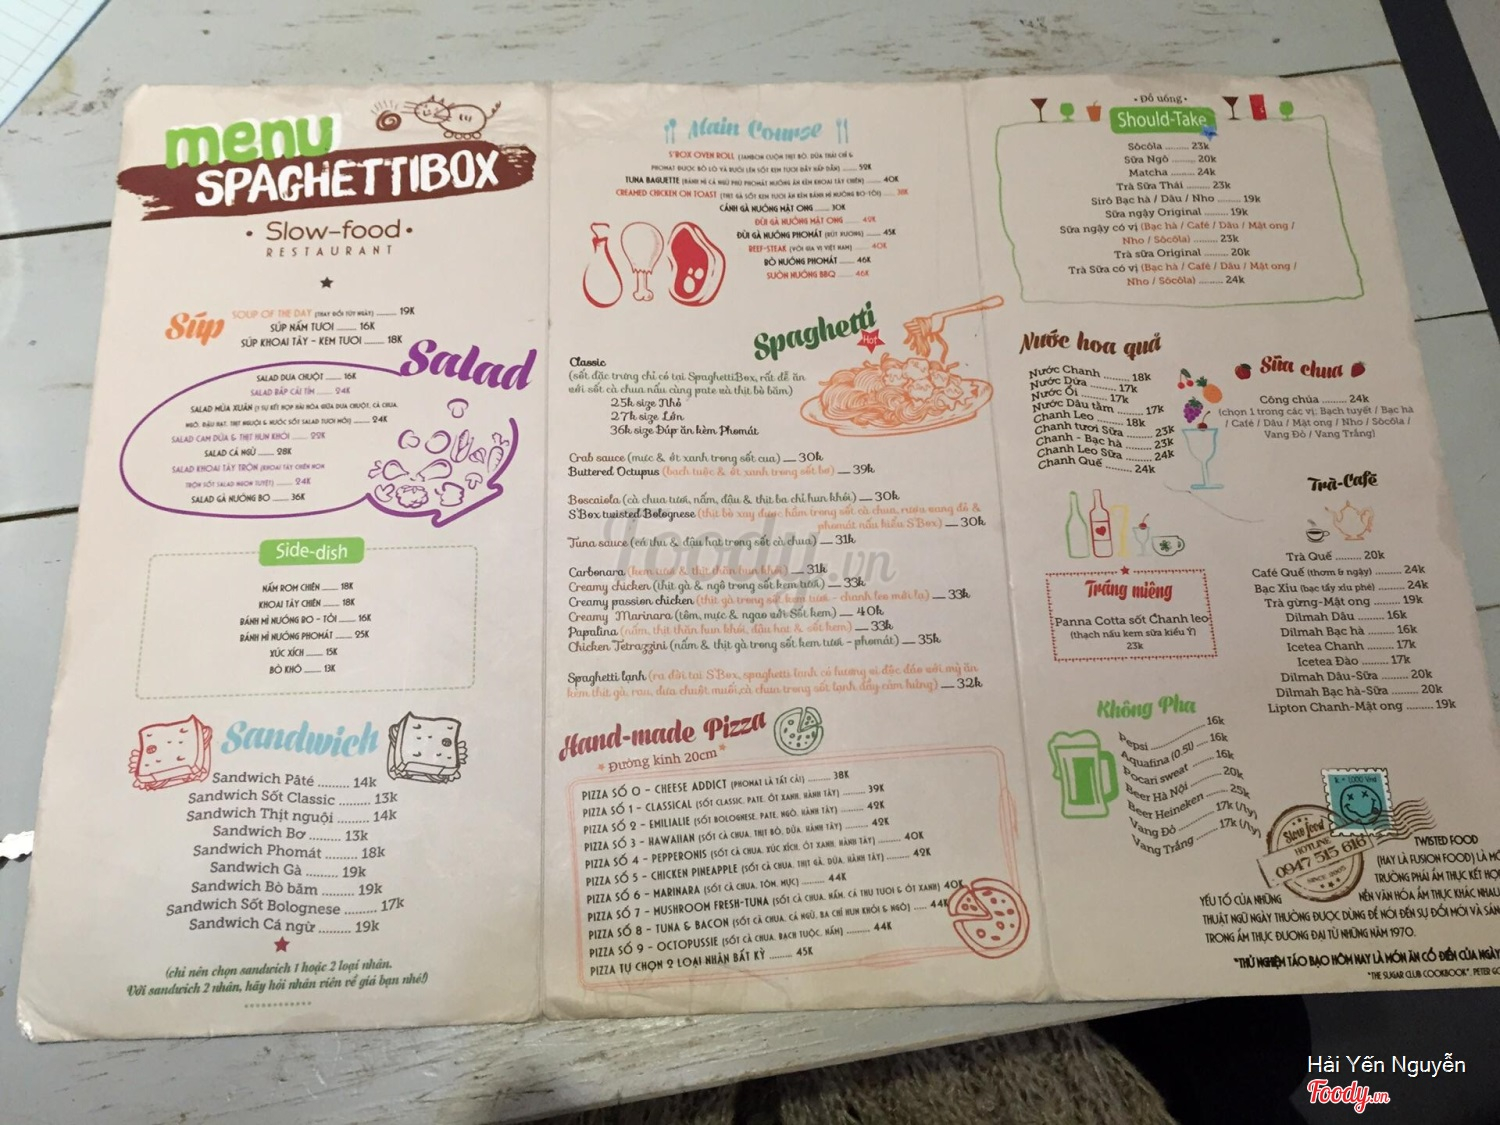 menu
SPAGHETTIBOX
• Slow-food •
RESTAURANT
Súp
SOUP OF THE DAY (THAY ĐỔI TÙY NGÀY) ........ 19K
SÚP NẤM TƯƠI ........ 16K
SÚP KHOAI TÂY - KEM TƯƠI ........ 18K
Salad
SALAD DƯA CHUỘT ........ 16K
SALAD BẮP CẢI TÍM ........ 24K
SALAD MÙA XUÂN (1 SỰ KẾT HỢP HÀI HÒA GIỮA DƯA CHUỘT, CÀ CHUA,
NGÔ, ĐẬU HẠT, THỊT NGUỘI & NƯỚC SỐT SALAD TƯƠI MỚI) ........ 24K
SALAD CAM DỨA & THỊT HUN KHÓI ........ 22K
SALAD CÁ NGỪ ........ 28K
SALAD KHOAI TÂY TRỘN (KHOAI TÂY CHIÊN NON
TRỘN SỐT SALAD NGON TUYỆT) ........ 24K
SALAD GÀ NƯỚNG BƠ ........ 36K
Side-dish
NẤM ROM CHIÊN ........ 18K
KHOAI TÂY CHIÊN ........ 18K
BÁNH MÌ NƯỚNG BƠ - TỎI ........ 16K
BÁNH MÌ NƯỚNG PHOMÁT ........ 25K
XÚC XÍCH ........ 15K
BÒ KHÔ ........ 13K
Sandwich
Sandwich Pâté ......... 14k
Sandwich Sốt Classic ......... 13k
Sandwich Thịt nguội ......... 14k
Sandwich Bơ ......... 13k
Sandwich Phomát ......... 18k
Sandwich Gà ......... 19k
Sandwich Bò băm ......... 19k
Sandwich Sốt Bolognese ......... 17k
Sandwich Cá ngừ ......... 19k
(chỉ nên chọn sandwich 1 hoặc 2 loại nhân.
Với sandwich 2 nhân, hãy hỏi nhân viên về giá bạn nhé!)
Main Course
S'BOX OVEN ROLL (JAMBON CUỘN THỊT BÒ, DỨA THÁI CHỈ &
PHOMAT ĐƯỢC BỎ LÒ VÀ RƯỚI LÊN SỐT KEM TƯƠI ĐẦY HẤP DẪN) ........ 52K
TUNA BAGUETTE (BÁNH MÌ CÁ NGỪ PHỦ PHOMÁT NƯỚNG ĂN KÈM KHOAI TÂY CHIÊN) ........ 40K
CREAMED CHICKEN ON TOAST (THỊT GÀ SỐT KEM TƯƠI ĂN KÈM BÁNH MÌ NƯỚNG BƠ-TỎI) ........ 38K
CÁNH GÀ NƯỚNG MẬT ONG ........ 30K
ĐÙI GÀ NƯỚNG MẬT ONG ........ 42K
ĐÙI GÀ NƯỚNG PHOMÁT (RÚT XƯƠNG) ........ 45K
BEEF-STEAK (VỚI GIA VỊ VIỆT NAM) ........ 40K
BÒ NƯỚNG PHOMÁT ........ 46K
SƯỜN NƯỚNG BBQ ........ 46K
Spaghetti
Hot
Classic
(sốt đặc trưng chỉ có tại SpaghettiBox, rất dễ ăn
với sốt cà chua nấu cùng pate và thịt bò băm)
25k size Nhỏ
27k size Lớn
36k size Đúp ăn kèm Phomát
Crab sauce (mực & ớt xanh trong sốt cua) — 30k
Buttered Octupus (bạch tuộc & ớt xanh trong sốt bơ) — 39k
Boscaiola (cà chua tươi, nấm, đậu & thịt ba chỉ hun khói) — 30k
S'Box twisted Bolognese (thịt bò xay được hầm trong sốt cà chua, rượu vang đỏ &
phomát nấu kiểu S'Box) — 30k
Tuna sauce (cá thu & đậu hạt trong sốt cà chua) — 31k
Carbonara (kem tươi & thịt thăn hun khói) — 31k
Creamy chicken (thịt gà & ngô trong sốt kem tươi) — 33k
Creamy passion chicken (thịt gà trong sốt kem tươi - chanh leo mới lạ) — 33k
Creamy Marinara (tôm, mực & ngao với Sốt kem) — 40k
Papalina (nấm, thịt thăn hun khói, đậu hạt & sốt kem) — 33k
Chicken Tetrazzini (nấm & thịt gà trong sốt kem tươi - phomát) — 35k
Spaghetti lạnh (ra đời tại S'Box, spaghetti lạnh có hương vị độc đáo với mỳ ăn
kèm thịt gà, rau, dưa chuột muối,cà chua trong sốt lạnh đầy cảm hứng) — 32k
Hand-made Pizza
* Đường kính 20cm *
PIZZA SỐ 0 - CHEESE ADDICT (PHOMAT LÀ TẤT CẢ!) ........ 38K
PIZZA SỐ 1 - CLASSICAL (SỐT CLASSIC, PATE, ỚT XANH, HÀNH TÂY) ........ 39K
PIZZA SỐ 2 - EMILIALIE (SỐT BOLOGNESE, PATE, NGÔ, HÀNH TÂY) ........ 42K
PIZZA SỐ 3 - HAWAIIAN (SỐT CÀ CHUA, THỊT BÒ, DỨA, HÀNH TÂY) ........ 42K
PIZZA SỐ 4 - PEPPERONIS (SỐT CÀ CHUA, XÚC XÍCH, ỚT XANH, HÀNH TÂY) ........ 40K
PIZZA SỐ 5 - CHICKEN PINEAPPLE (SỐT CÀ CHUA, THỊT GÀ, DỨA, HÀNH TÂY) ........ 42K
PIZZA SỐ 6 - MARINARA (SỐT CÀ CHUA, TÔM, MỰC) ........ 44K
PIZZA SỐ 7 - MUSHROOM FRESH-TUNA (SỐT CÀ CHUA, NẤM, CÁ THU TƯƠI & ỚT XANH) 40K
PIZZA SỐ 8 - TUNA & BACON (SỐT CÀ CHUA, CÁ NGỪ, BA CHỈ HUN KHÓI & NGÔ) ..... 44K
PIZZA SỐ 9 - OCTOPUSSIE (SỐT CÀ CHUA, BẠCH TUỘC, NẤM) ........ 44K
PIZZA TỰ CHỌN 2 LOẠI NHÂN BẤT KỲ ........ 45K
• Đồ uống •
Should-Take
Sôcôla ........ 23k
Sữa Ngô ........ 20k
Matcha ........ 24k
Trà Sữa Thái ........ 23k
Sirô Bạc hà / Dâu / Nho ........ 19k
Sữa ngậy Original ........ 19k
Sữa ngậy có vị (Bạc hà / Café / Dâu / Mật ong /
Nho / Sôcôla) ........ 23k
Trà sữa Original ........ 20k
Trà Sữa có vị (Bạc hà / Café / Dâu / Mật ong /
Nho / Sôcôla) ........ 24k
Nước hoa quả
Nước Chanh ........ 18k
Nước Dừa ........ 17k
Nước Ổi ........ 17k
Nước Dâu tằm ........ 17k
Chanh Leo ........ 18k
Chanh tươi Sữa ........ 23k
Chanh - Bạc hà ........ 23k
Chanh Leo Sữa ........ 24k
Chanh Quế ........ 24k
Sữa chua
Công chúa ........ 24k
(chọn 1 trong các vị: Bạch tuyết / Bạc hà
/ Café / Dâu / Mật ong / Nho / Sôcôla /
Vang Đỏ / Vang Trắng)
Tráng miệng
Panna Cotta sốt Chanh leo
(thạch nấu kem sữa kiểu Ý)
23k
Trà-Café
Trà Quế ........ 20k
Café Quế (thơm & ngậy) ........ 24k
Bạc Xỉu (bạc tẩy xỉu phé) ........ 24k
Trà gừng-Mật ong ........ 19k
Dilmah Dâu ........ 16k
Dilmah Bạc hà ........ 16k
Icetea Chanh ........ 17k
Icetea Đào ........ 17k
Dilmah Dâu-Sữa ........ 20k
Dilmah Bạc hà-Sữa ........ 20k
Lipton Chanh-Mật ong ........ 19k
Không Pha
Pepsi ........ 16k
Aquafina (0.5l) ... 16k
Pocari sweat ........ 16k
Beer Hà Nội ........ 20k
Beer Heineken ........ 25k
Vang Đỏ ........ 17k (/ly)
Vang Trắng ........ 17k (/ly)
Slow food
HOTLINE
0947 515 616
SINCE 2005
TWISTED FOOD
(HAY LÀ FUSION FOOD) LÀ MÓ
TRƯỜNG PHÁI ẨM THỰC KẾT HỢP
YẾU TỐ CỦA NHỮNG NỀN VĂN HÓA ẨM THỰC KHÁC NHAU.
THUẬT NGỮ NGÀY THƯỜNG ĐƯỢC DÙNG ĐỂ NÓI ĐẾN SỰ ĐỔI MỚI VÀ SÁN
TRONG ẨM THỰC ĐƯƠNG ĐẠI TỪ NHỮNG NĂM 1970.
"THỬ NGHIỆM TÁO BẠO HÔM NAY LÀ MÓN ĂN CỔ ĐIỂN CỦA NGÀY
"THE SUGAR CLUB COOKBOOK", PETER GO
foody.vn
Hải Yến Nguyễn
Foody.vn